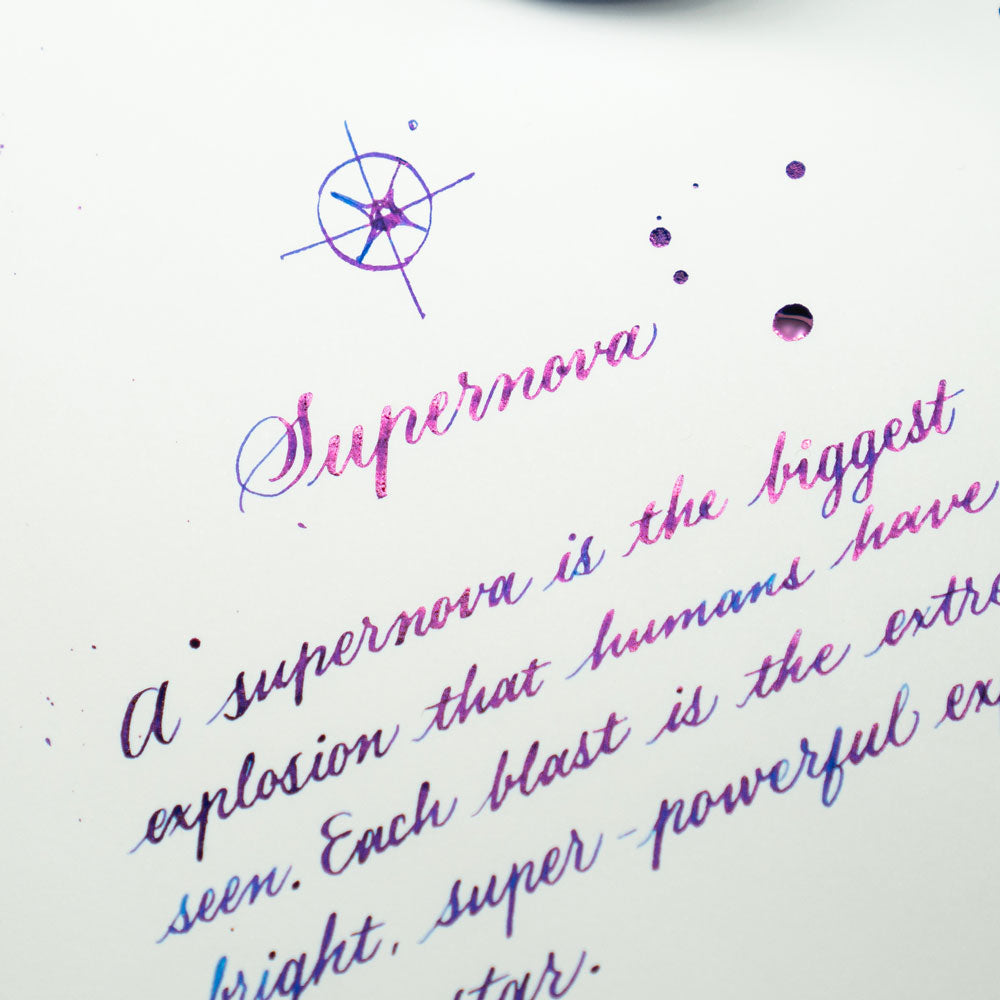 Supernova
A supernova is the biggest
explosion that humans have
seen. Each blast is the extre
bright, super-powerful ex
star.